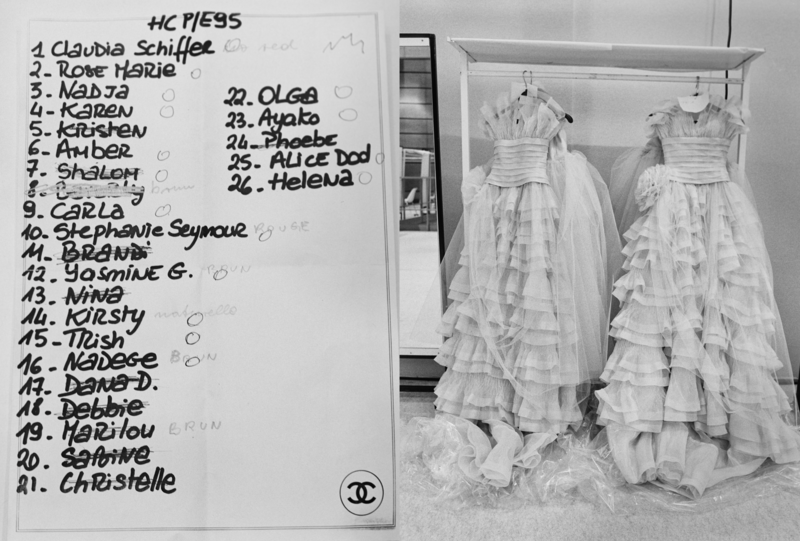 HC P/E95
1 Claudia Schiffer
2- Rose Marie
3- Nadja
4- Karen
5- Kristen
6- Amber
7- Shalom
8-
9- Carla
10- Stephanie Seymour ROUGE
11- Brandi
12- Yasmine G. BRUN
13- Nina
14- Kirsty naturelle
15- Trish
16- Nadege BRUN
17- Dana D.
18- Debbie
19- Marilou BRUN
20- Sabine
21- Christelle
22- OLGA
23- Ayako
24- Phoebe
25- ALICE Dod
26- Helena